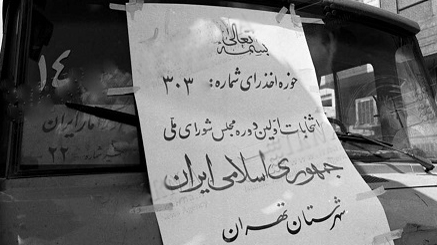 بسمه تعالی
حوزه اخذ رای شماره: ۳۰۳
انتخابات اولین دوره مجلس شورای ملی
جمهوری اسلامی ایران
شهرستان تهران
۱۴
آمار ایران
۲۲